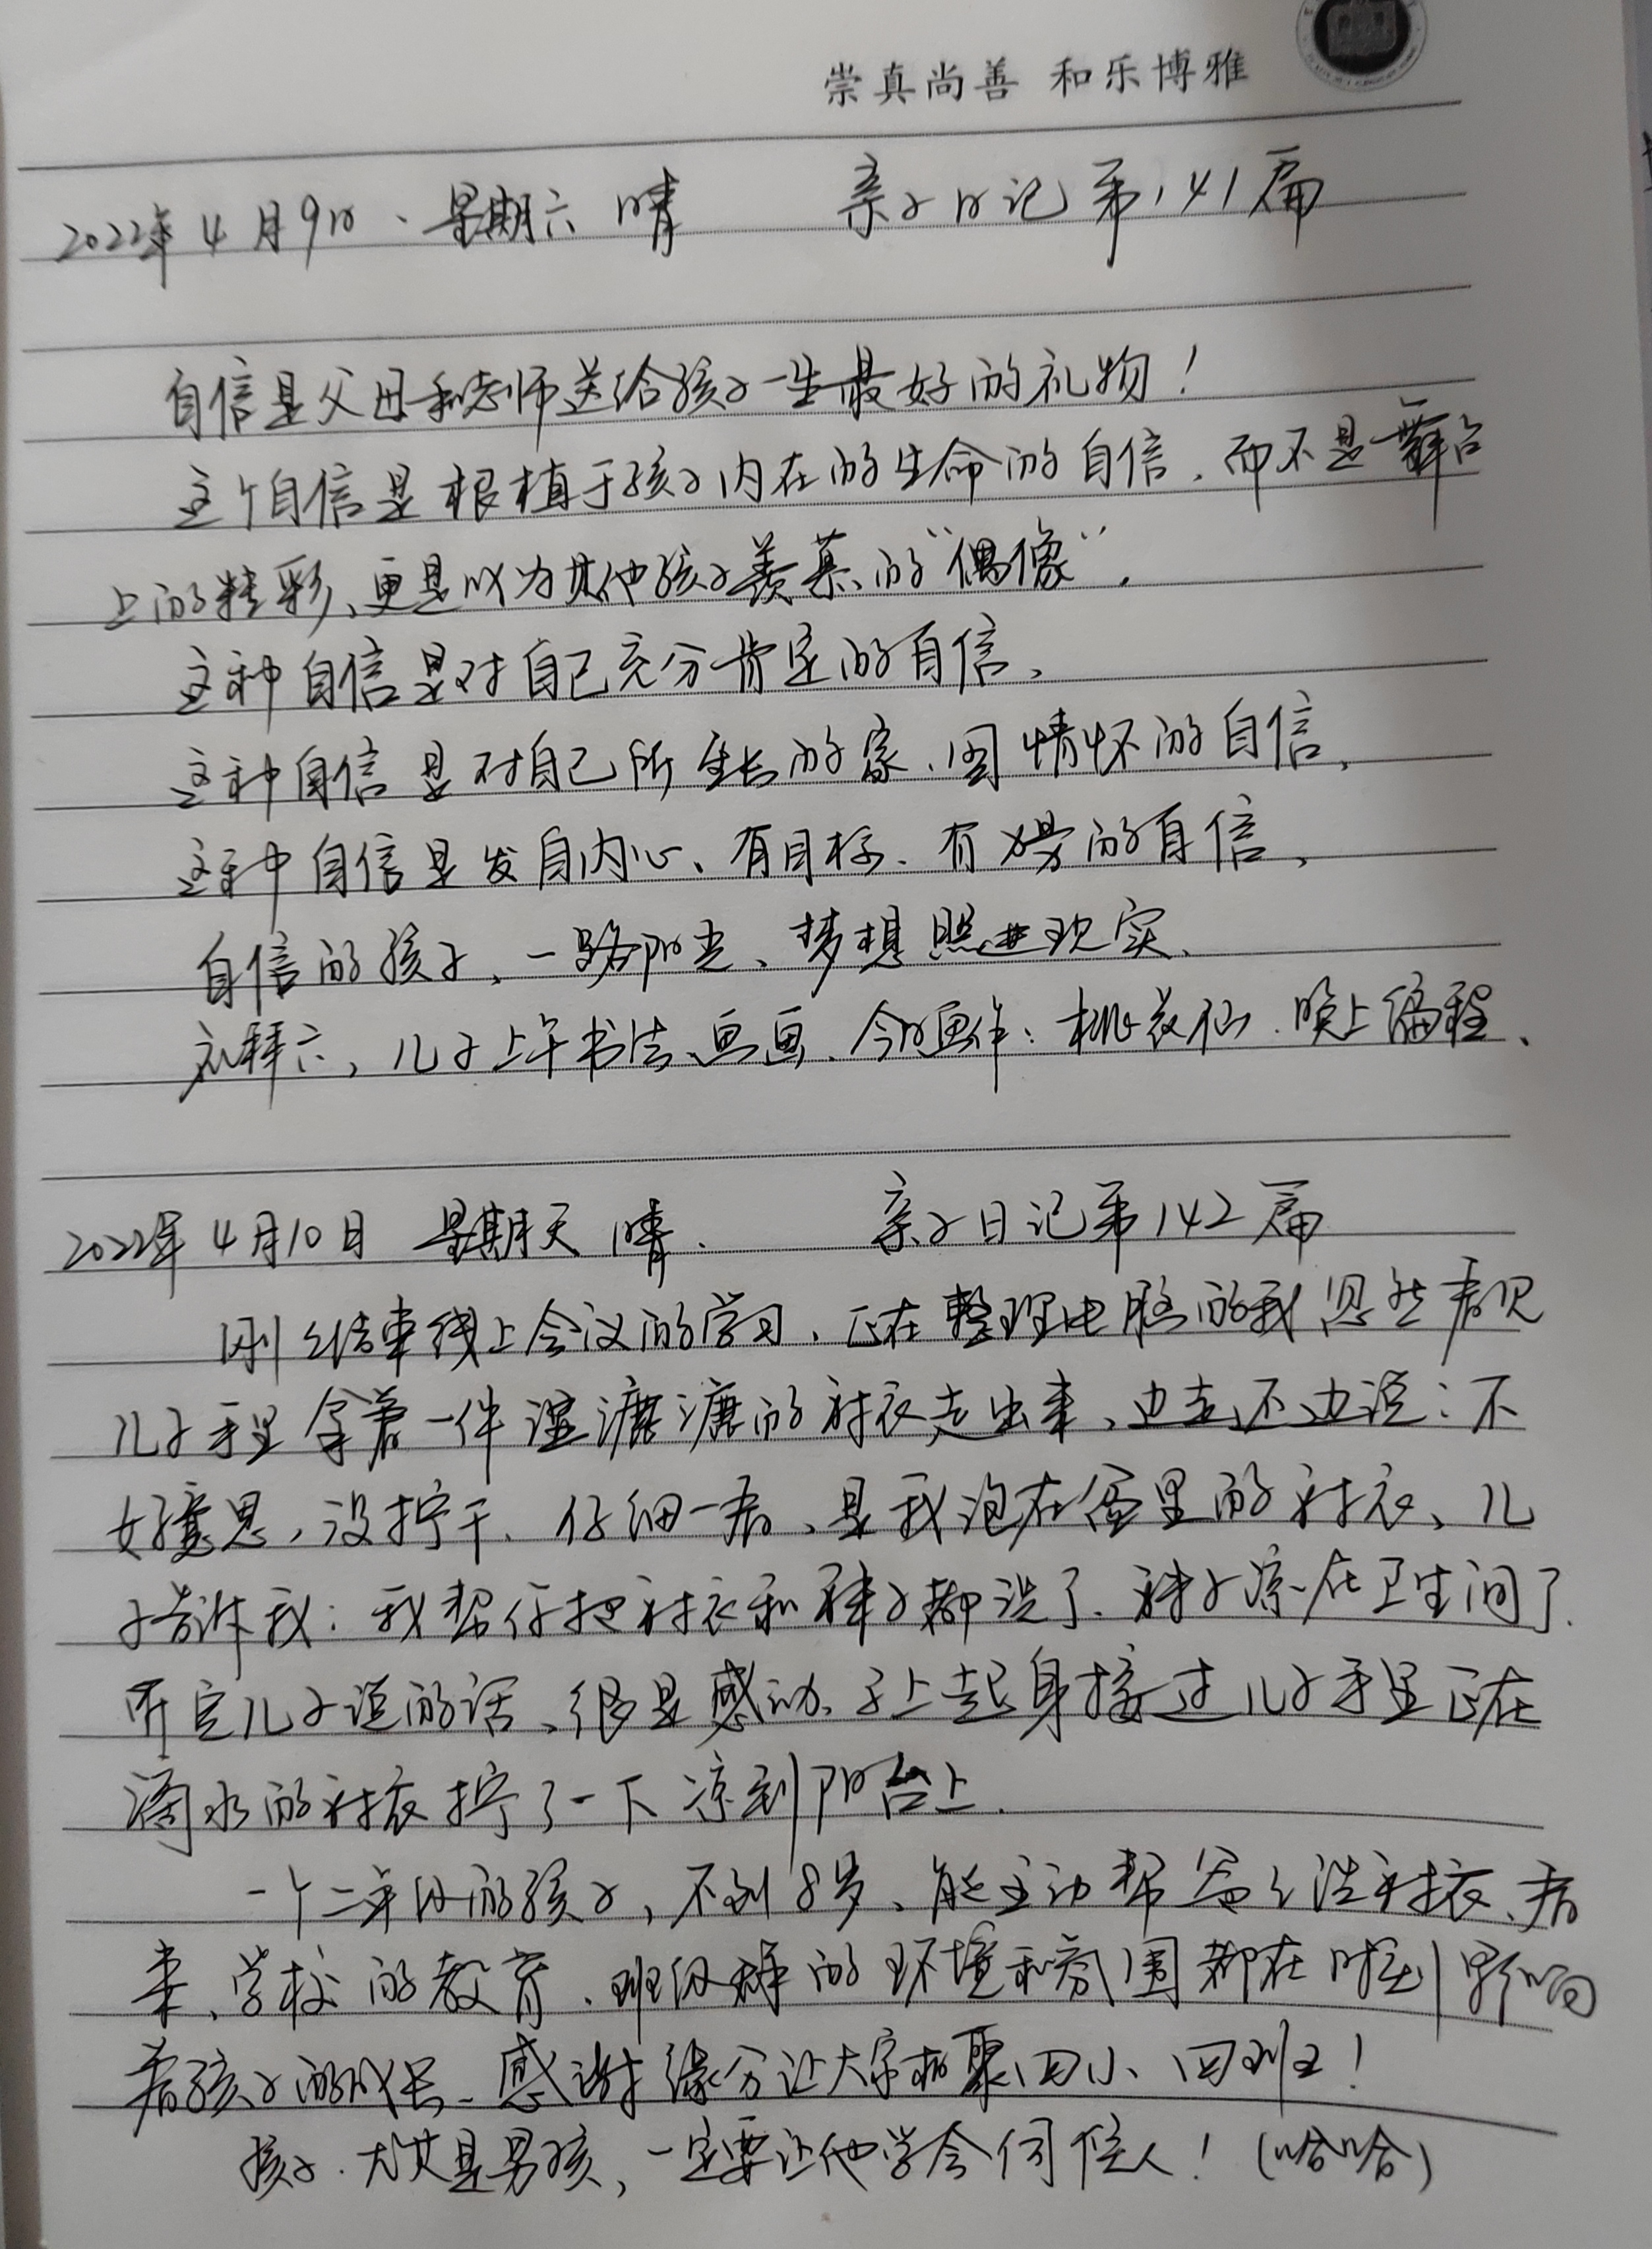 崇真尚善 和乐博雅
2022年4月9日、星期六 晴 亲子日记第141篇
自信是父母和老师送给孩子一生最好的礼物！
这个自信是根植于孩子内在的生命的自信，而不是舞台
上的精彩、更是以为其他孩子羡慕的“偶像”。
这种自信是对自己充分肯定的自信、
这种自信是对自己所生长的家、国情怀的自信、
这种自信是发自内心、有目标、有的自信、
自信的孩子、一路阳光、梦想照进现实、
礼拜六，儿子上午书法、画画、今日画作：桃花仙、晚上编程、
2022年4月10日 星期天 晴. 亲子日记第142篇
刚结束线上会议的学习、正在整理电脑的我忽然看见
儿子手里拿着一件湿漉漉的衬衣走出来、边走还边说：不
好意思，没拧干、仔细一看、是我泡在盆里的衬衣、儿
子告诉我：我帮你把衬衣和袜子都洗了、袜子凉在卫生间了.
听完儿子说的话、很是感动、马上起身接过儿子手里正在
滴水的衬衣拧了一下凉到阳台上.
一个二年级的孩子，不到8岁、能主动帮爸爸洗衬衣、看
来、学校的教育、班级群的环境和氛围都在时刻影响
着孩子的成长、感谢缘分让大家相聚四小、四班！
孩子、尤其是男孩，一定要让他学会伺候人！（哈哈）